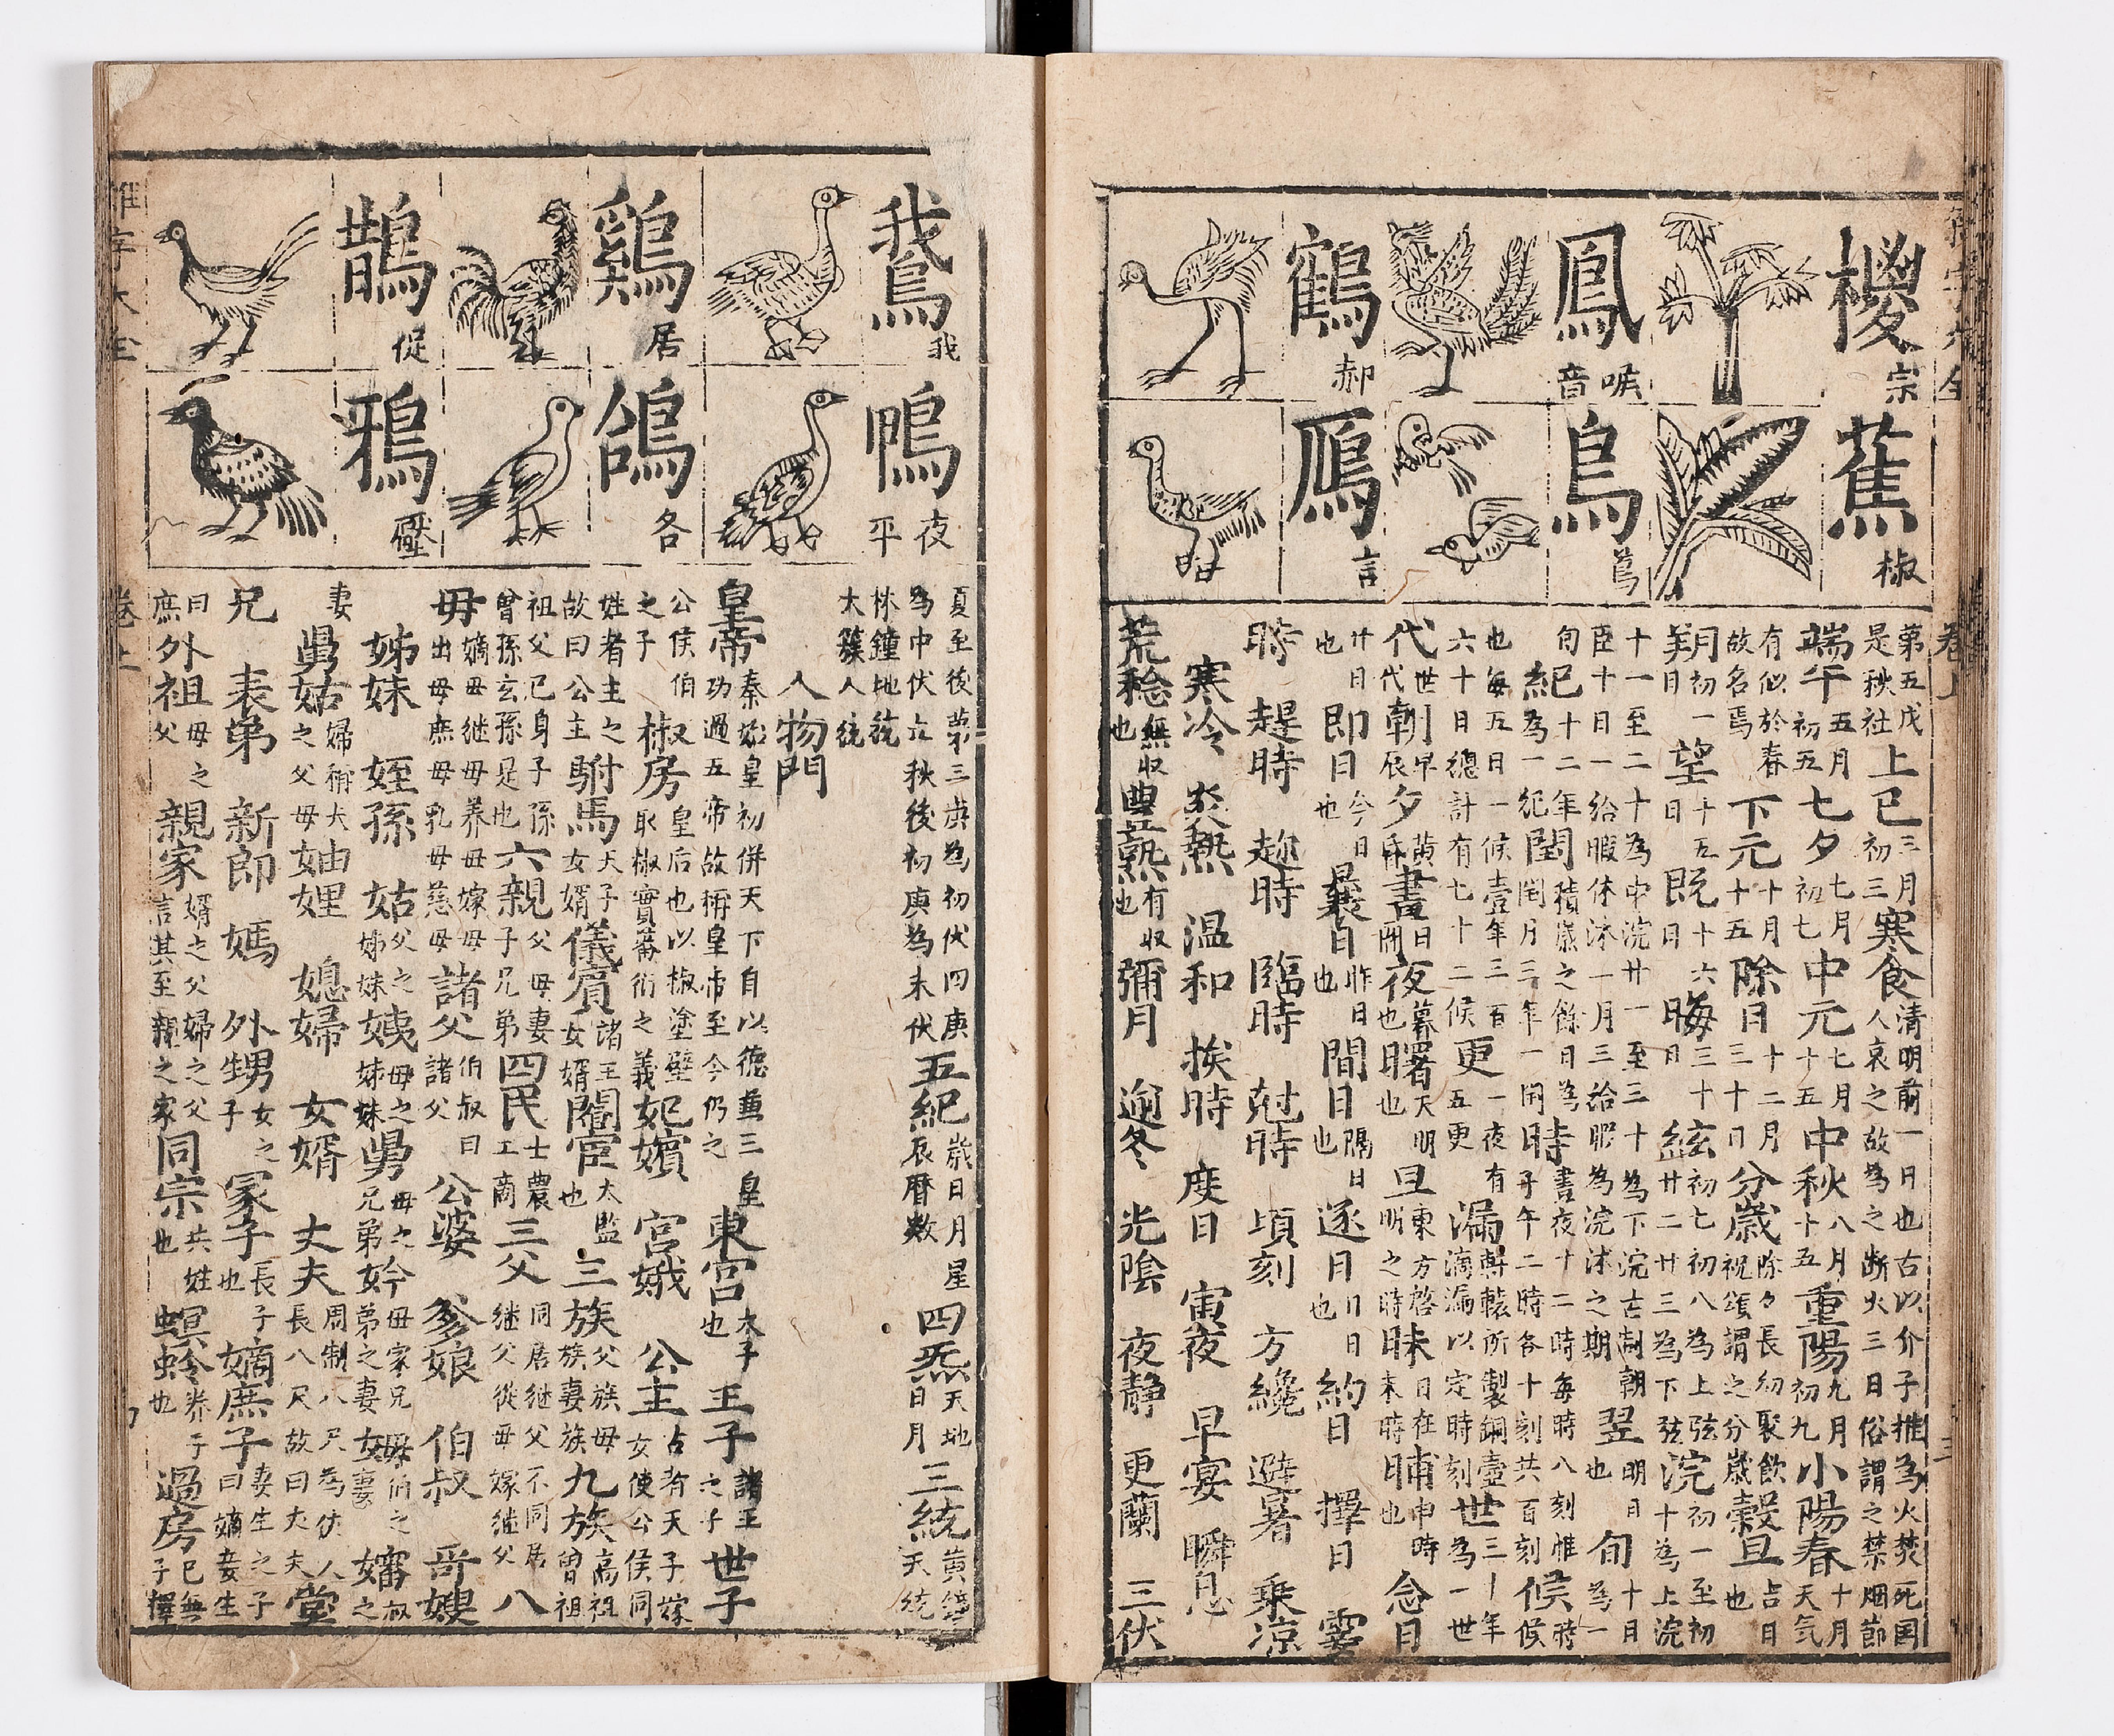 椶 宗
鳳 唳音
鶴 郝
蕉 椒
鳥 蔦
鴈 言
第五戊是秋社上巳三月初三寒食清明前一日也古以介子推為火焚死国人哀之故為之断火三日俗謂之禁烟節
端午五月初五七夕七月初七中元七月十五中秋八月十五重陽九月初九小陽春十月天气
有似於春故名焉下元十月十五除日十二月三十日分歲除夕長幼聚飲祝頌謂之分歲穀旦吉日也
朔初一日望十五日既十六日晦三十日絃初七初八為上弦廿二廿三為下弦浣初一至初十為上浣
十一至二十為中浣廿一至三十為下浣古制朝臣十日一給暇休沐一月三給暇為浣沐之期翌明日也旬十日為一
旬紀十二年為一紀閏積歲之餘日為閏月三年一閏時晝夜十二時每時八刻惟子午二時各十刻共百刻候時候
也每五日一候壹年三百六十日總計有七十二候更一夜有五更漏軒轅所製銅壺滴漏以定時刻世三十年為一世
代世代朝早辰夕黄昏晝日間夜暮也曙天明也旦東方啓明之時昧日在未時晡申時也念日
廿日也即日今日也曩日昨日也間日隔日也逐日日日也約日 擇日 霎
時 趕時 趂時 臨時 尅時 頃刻 方纔 避暑 乗凉
寒冷 炎熱 温和 挨時 度日 寅夜 早宴 瞬息
荒稔無収也豊熟有収也彌月 逈冬 光陰 夜静 更蘭 三伏
卷上 三
鵞 我
鷄 居
鵲 促
鴨 夜平
鴿 各
鴉 壓
夏至後第三庚為初伏四庚為中伏立秋後初庚為末伏五紀歲日月星辰暦数四炁天地日月三統黄鐘天統
林鐘地統太簇人統
人物門
皇帝秦始皇初併天下自以德兼三皇功過五帝故稱皇帝至今仍之東宮太子也王子諸王之子世子
公侯伯之子椒房皇后也以椒塗壁取椒實蕃衍之義妃嬪 宮娥 公主古者天子嫁女使公侯同
姓者主之故曰公主駙馬天子女婿儀賓諸王女婿閹宦太監也三族父族母族妻族九族高祖曾祖
祖父已身子孫曾孫玄孫是也六親父母妻子兄弟四民士農工商三父同居継父不同居継父從母嫁継父八
母嫡母継母養母嫁母出母庶母乳母慈母諸父伯叔曰諸父公婆 爹娘 伯叔 哥嫂
姊妹 姪孫 姑父之姊妹姨母之姊妹舅母之兄弟妗母家兄弟之妻
妻舅姑婦稱夫之父母妯娌 媳婦 女婿 丈夫周制八尺為丈人長八尺故曰丈夫堂
兄 表弟 新郎 媽 外甥女之子冢子長子也嫡庶子妻生之子曰嫡妾生
曰庶外祖母之父親家婿之父婦之父言其至親之家同宗共姓也螟蛉養子也過房已無子擇